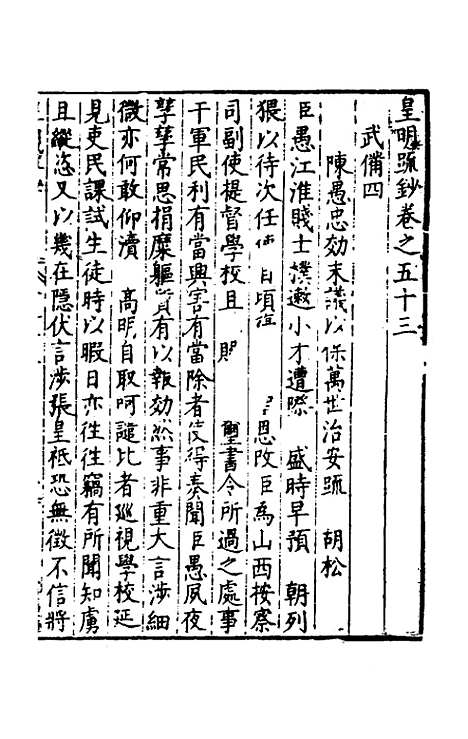 皇明疏鈔卷之五十三
武備四
陳愚忠効末議以保萬世治安疏 胡松
臣愚江淮賤士樸遬小才遭際 盛時早預 朝列
猥以待次任 自頃 恩改臣爲山西按察
司副使提督學校且 賜 璽書令所過之處事
干軍民利有當興害有當除者使得奏聞臣愚夙夜
孳孳常思捐糜軀質有以報効然事非重大言涉細
微亦何敢仰瀆 高明自取呵譴比者巡視學校延
見吏民課試生徒時以暇日亦徃徃竊有所聞知虜
且縱恣又以幾在隱伏言涉張皇祗恐無徵不信將